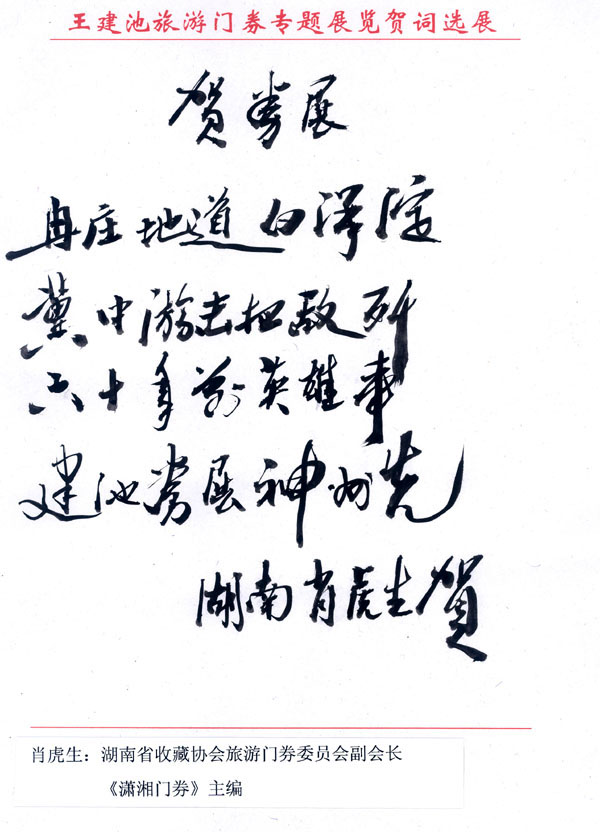 王建池旅游门券专题展览贺词选展
贺券展
冉庄地道白洋淀
冀中游击把敌歼
六十年前英雄事
建池券展神州先
湖南肖虎生贺
肖虎生：湖南省收藏协会旅游门券委员会副会长
《潇湘门券》主编